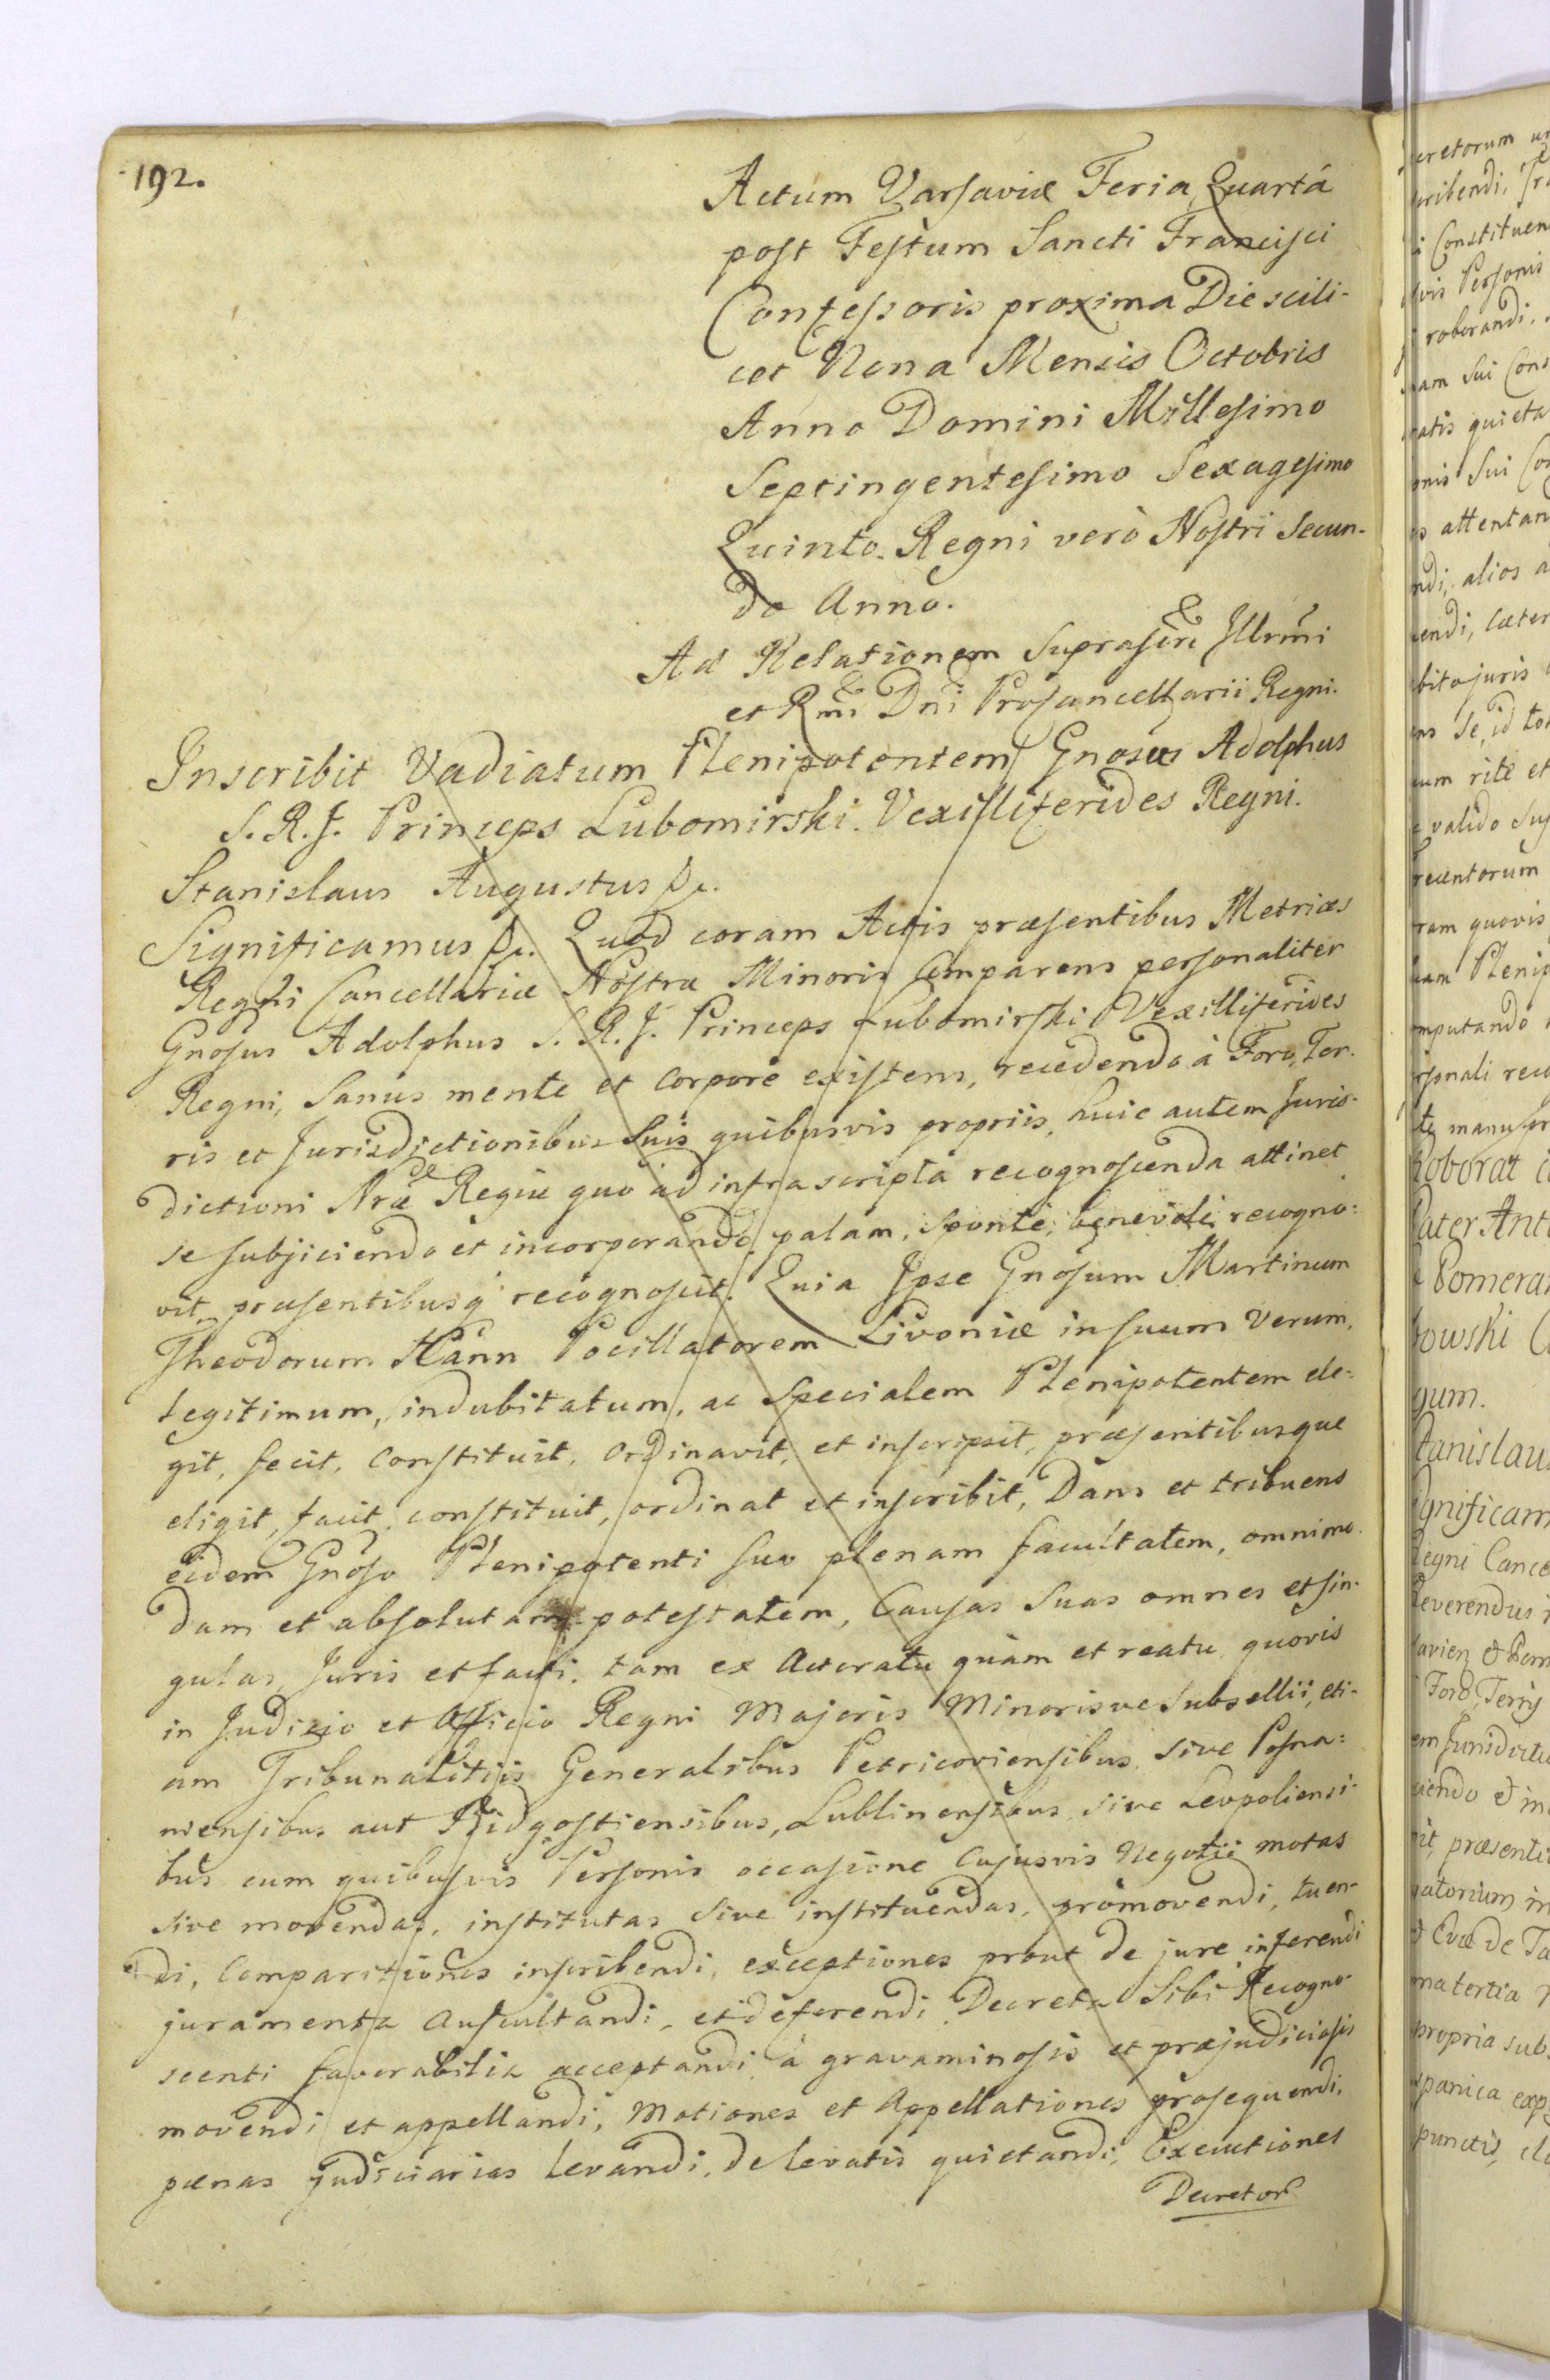 192.
Actum Varsaviæ Feria Quartâ
post Festum Sancti Francisci
Confessoris proxima Die scili-
cet Nona Mensis Octobris
Anno Domini Millesimo
Septingentesimo Sexagesimo
Quinto. Regni verò Nostri Secun-
do Anno.
Ad Relationem Suprascri Illrmi
et Rmi Dni Procancellarii Regni.
Inscribit Vadiatum Plenipotentem Gnosus Adolphus
S. R. J. Princeps Lubomirski. Vexilliferides Regni.
Stanislaus Augustus &c.
Significamus &c. Quod coram Actis præsentibus Metrices
Regni Cancellariæ Nostræ Minoris Comparens personaliter
Gnosus Adolphus S. R. J. Princeps Lubomirski Vexilliferides
Regni, Sanus mente et Corpore existens, recedendo à Foro, Ter-
ris et Jurisdictionibus Suis quibusvis propriis, huic autem Juris-
dictioni Nræ Regiæ quo ad infrascripta recognoscenda attinet
se subjiciendo et incorporando, palam, Sponte, benevolè recogno:
vit, præsentibusq recognoscit. Quia Ipse Gnosum Martinum
Theodorum Hann Pocillatorem Livoniæ in suum Verum,
Legitimum, indubitatum, ac Specialem Plenipotentem ele:
git, fecit, Constituit, Ordinavit, et inscripsit, præsentibusque
eligit, facit, constituit, ordinat et inscribit, Dans et tribuens
eidem Gnoso Plenipotenti suo plenam facultatem, omnimo-
dam et absolutam potestatem, Causas Suas omnes et sin-
gulas, Juris et facti, tam ex Actoratu quàm et reatu, quovis
in Judicio et Officio Regni Majoris Minorisve Subsellii, eti-
am Tribunalitiis Generalibus Petricoviensibus, sive Posna:
niensibus aut Bidgostiensibus, Lublinensibus sive Leopoliensi-
bus cum quibusvis Personis occasione Cujusvis Negotii motas
sive movendas, institutas sive instituendas, promovendi, tuen-
di, Comparitiones inscribendi, exceptiones prout de jure inferendi
juramenta auscultandi, et deferendi, Decreta Sibi Recogno-
scenti favorabilia acceptandi, à gravaminosis et præjudiciosis
movendi et appellandi, Motiones et Appellationes prosequendi,
pœnas judiciarias Levandi, de levatis quietandi, Executiones
Decretor